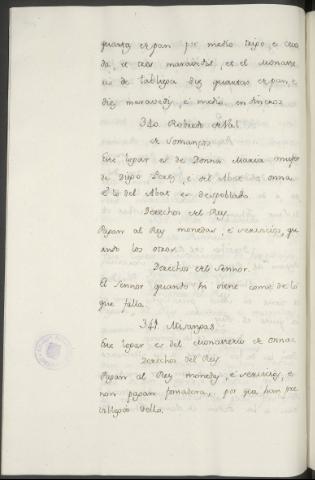 quarta de pan por medio trigo, e ceva
da, et tres maravedis, et el Monaste
rio de tablega diez quartas de pan, e
diez maravedis, e medio en dineros
340 Robredo
de Somanços
Este logar es de Donna Maria muger
de Diego Perez, e del Abat de onna
e lo del Abat es despoblado.
Derechos del Rey.
Pagan al Rey monedas, e servicios, qu
ando los otros.
Derechos del Sennor.
El Sennor quando hi viene come de lo
que falla.
341 Miranpas
Este logar es del Monasterio de onna
Derechos del Rey
Pagan al Rey monedas, e servicios, e
non pagan fonsadera, por que han pre
villegios dello.